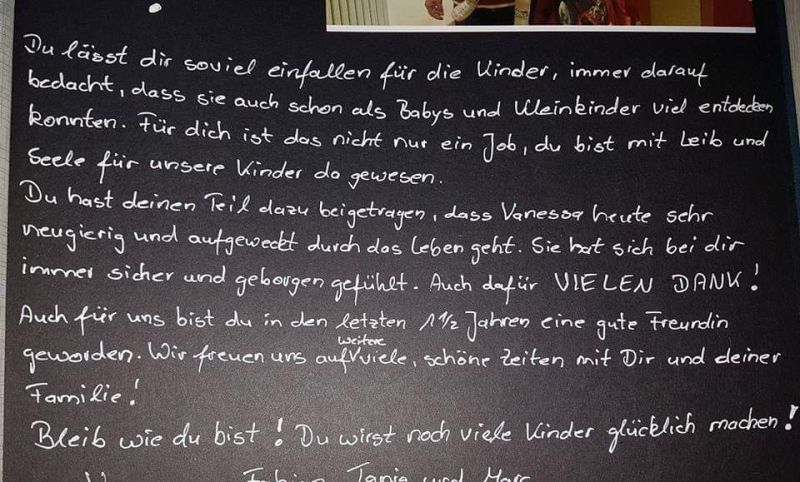 Du lässt dir soviel einfallen für die Kinder, immer darauf
bedacht, dass sie auch schon als Babys und Kleinkinder viel entdecken
konnten. Für dich ist das nicht nur ein Job, du bist mit Leib und
Seele für unsere Kinder da gewesen.
Du hast deinen Teil dazu beigetragen, dass Vanessa heute sehr
neugierig und aufgeweckt durch das Leben geht. Sie hat sich bei dir
immer sicher und geborgen gefühlt. Auch dafür VIELEN DANK!
Auch für uns bist du in den letzten 1 1/2 Jahren eine gute Freundin
geworden. Wir freuen uns auf weitere viele, schöne Zeiten mit Dir und deiner
Familie!
Bleib wie du bist! Du wirst noch viele Kinder glücklich machen!
Tanja und Marc